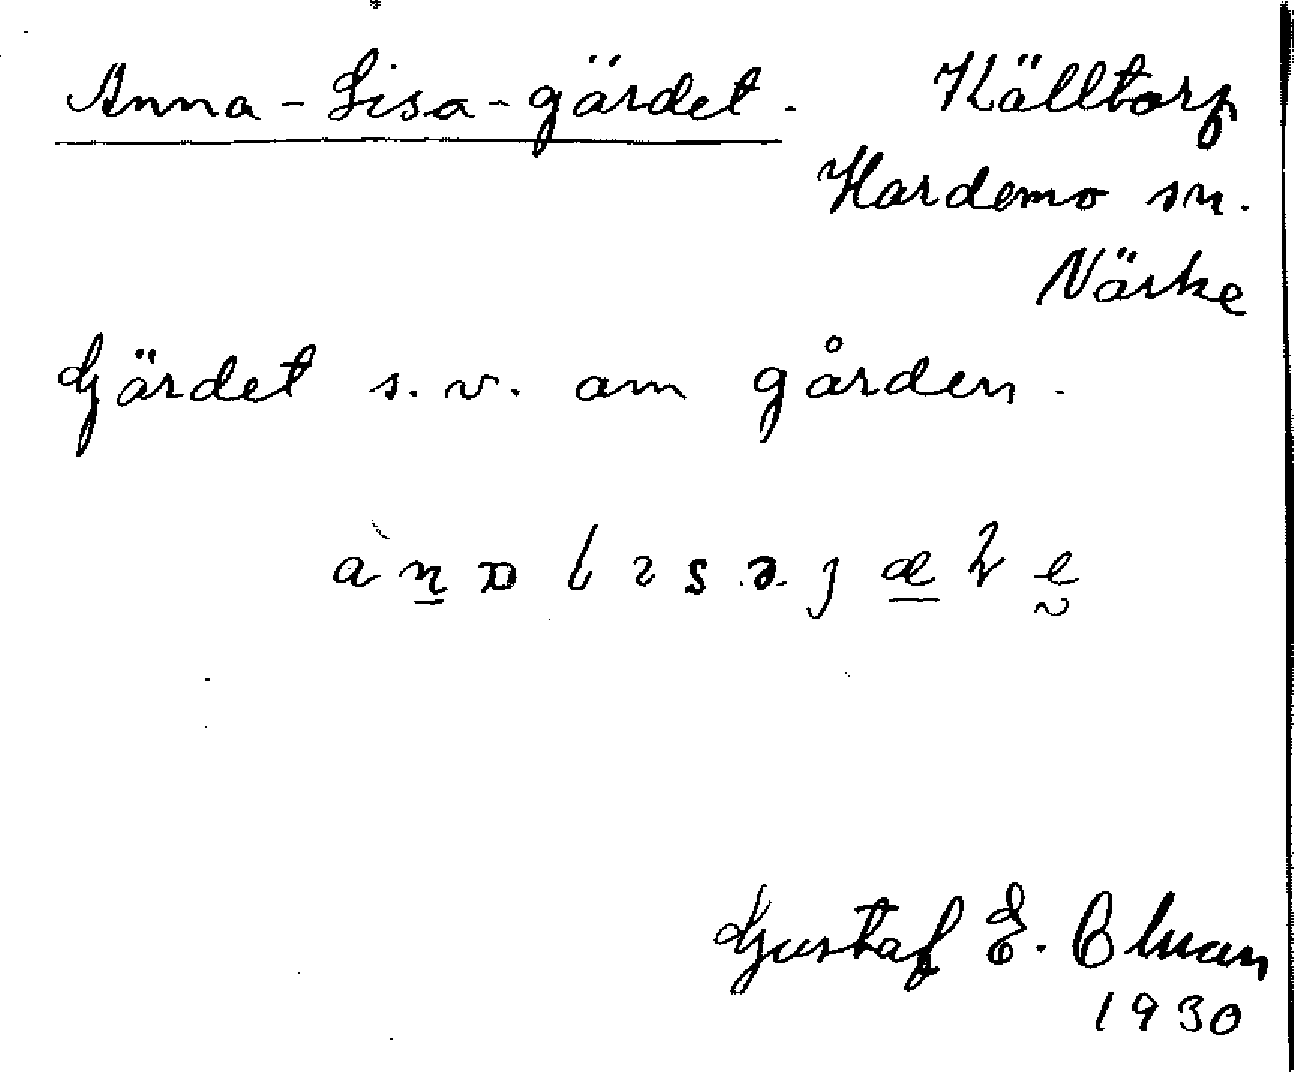 Anna-Lisa-gärdet. Källtorp
Hardemo sn.
Närke
Gärdet s.v. om gården.
Gustaf E. Elman
1930